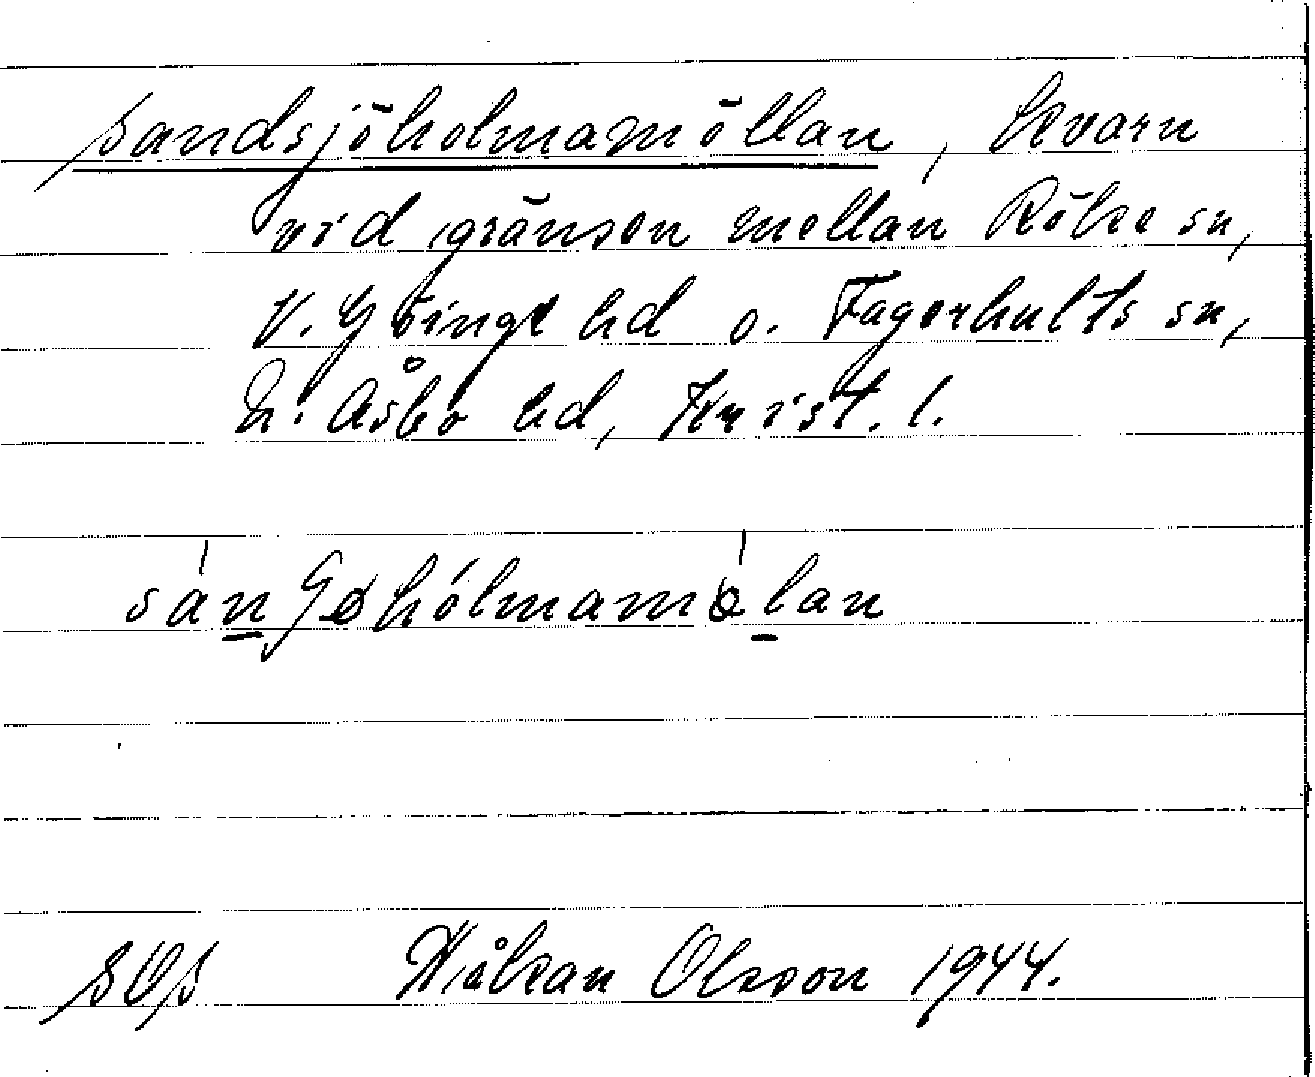 Sandsjöholmamöllan, kvarn
vid gränsen mellan Röke sn,
V. Göinge hd o. Fagerhults sn,
N. Åsbo hd, Krist. l.
Håkan Olsson 1944.